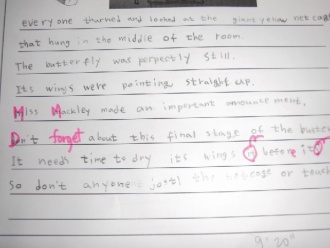 everyone thurned and looked at the giant yellow net cage
that hung in the middle of the room.
The butterfly was porpectly still.
Its wings were pointing straight up.
Miss Mackley made an important anouncement,
Don't forget about this final stage of the butter
It needs time to dry its wings before it
So don't anyone jostl the netcage or touch
9'20"